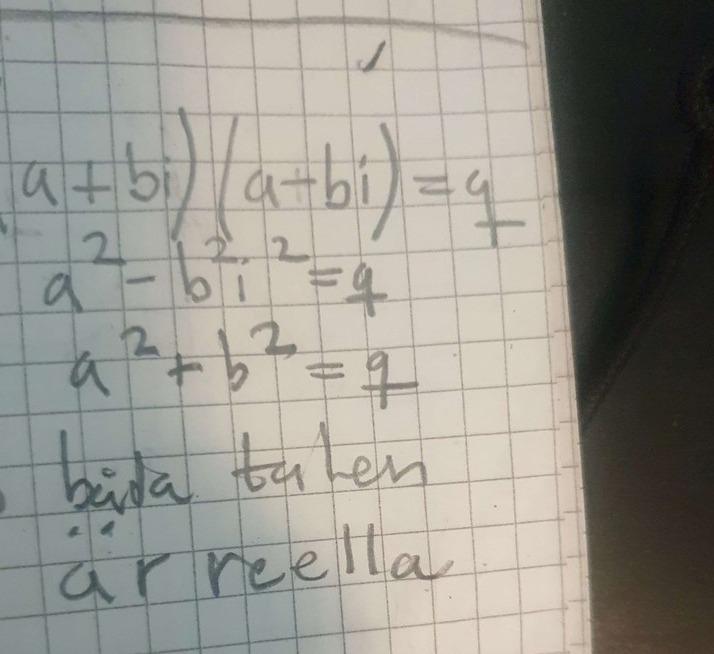 a+bi)(a+bi)=q
a²-b²i²=q
a²+b²=q
båda talen
är reella